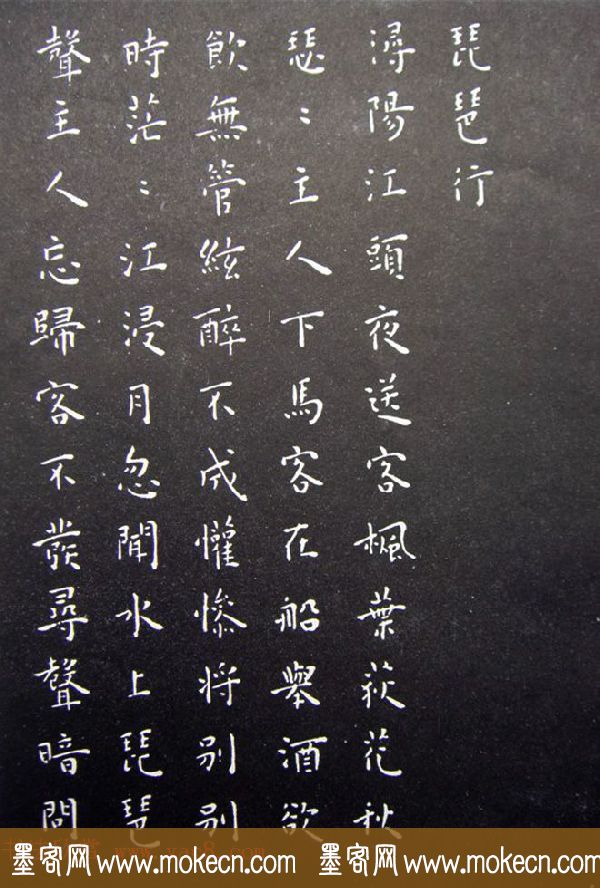 琵琶行
潯陽江頭夜送客楓葉荻花秋
瑟〻主人下馬客在船舉酒欲
飲無管絃醉不成懽慘将别别
時茫〻江浸月忽聞水上琵琶
聲主人忘歸客不發尋聲暗問
墨客网 www.mokecn.com 墨客网 www.mokecn.com